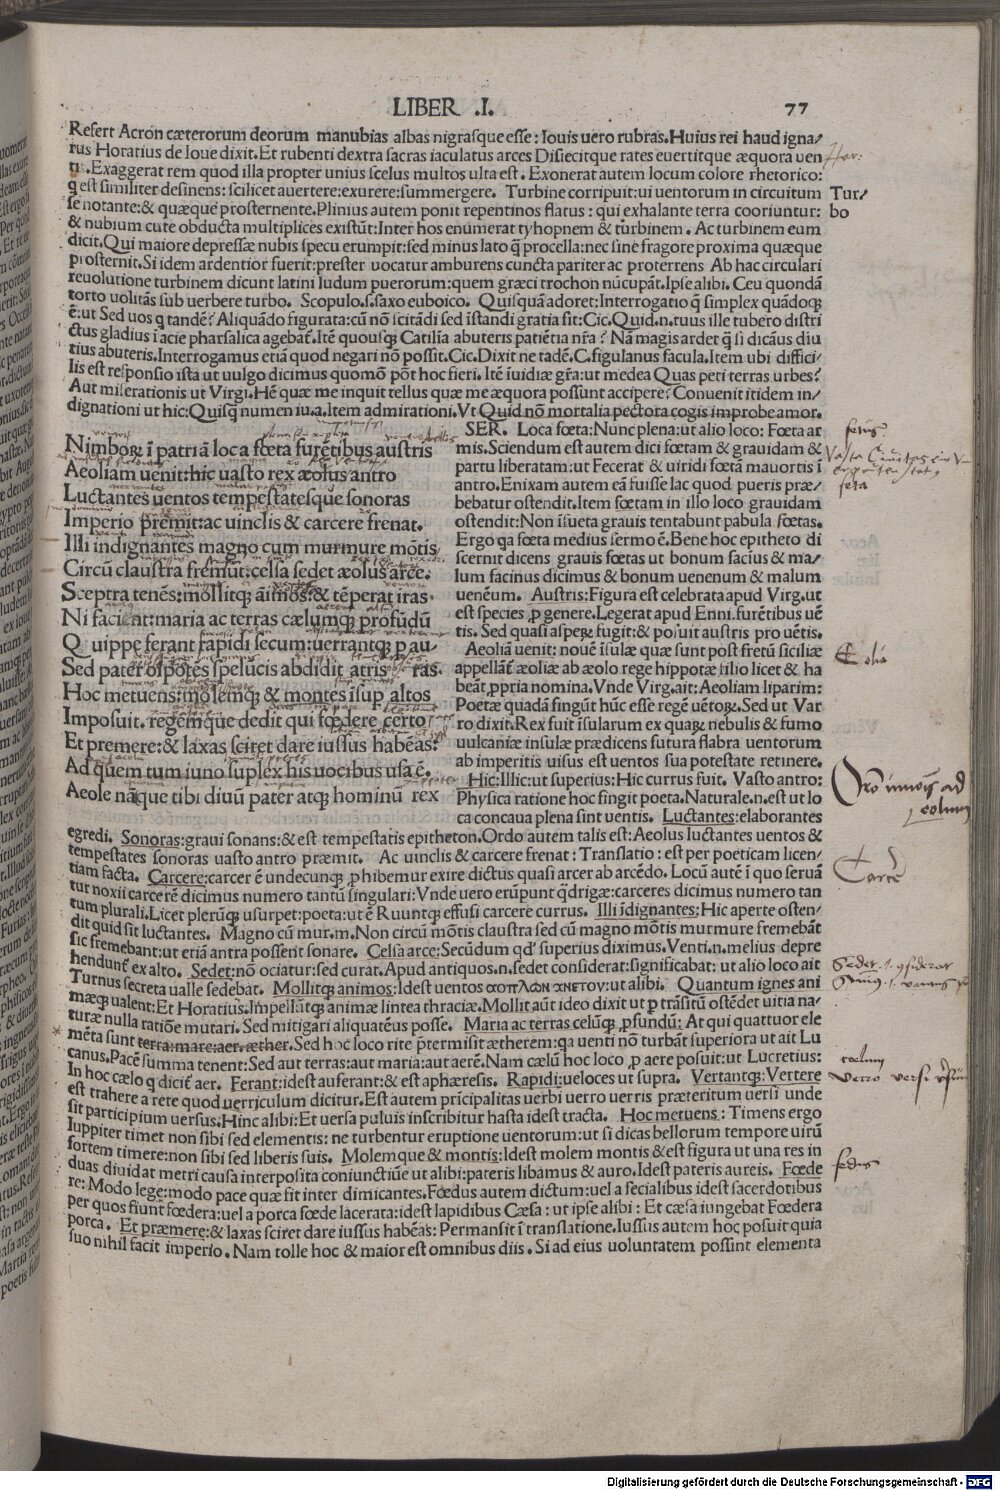 LIBER .I. 77
Refert Acron cæterorum deorum manubias albas nigrasque esse: Iouis uero rubras. Huius rei haud igna/
rus Horatius de Ioue dixit. Et rubenti dextra sacras iaculatus arces Disiecitque rates euertitque æquora uen
tis. Exaggerat rem quod illa propter unius scelus multos ulta est. Exonerat autem locum colore rhetorico:
q̃ est similiter desinens: scilicet auertere: exurere: summergere. Turbine corripuit: ui uentorum in circuitum
se notante: & quæque prosternente. Plinius autem ponit repentinos flatus: qui exhalante terra cooriuntur:
& nubium cute obducta multiplices existũt: Inter hos enumerat tyhopnem & turbinem. Ac turbinem eum
dicit. Qui maiore depressæ nubis specu erumpit: sed minus lato q̃ procella: nec sine fragore proxima quæque
prosternit. Si idem ardentior fuerit: prester uocatur amburens cuncta pariter ac proterrens Ab hac circulari
reuolutione turbinem dicunt latini ludum puerorum: quem græci trochon nũcupãt. Ipse alibi. Ceu quondã
torto uolitãs sub uerbere turbo. Scopulo. s. saxo euboico. Quisquã adoret: Interrogatio q̃ simplex quãdoqȝ
ẽ: ut Sed uos q tandẽ? Aliquãdo figurata: cũ nõ scitãdi sed ĩstandi gratia fit: Cic. Quid. n. tuus ille tubero distri
ctus gladius ĩ acie pharsalica agebat̃. Itẽ quousqȝ Catilĩa abuteris patiẽtia nr̃a? Nã magis ardet q̃ si dicãus diu
tius abuteris. Interrogamus etiã quod negari nõ possit. Cic. Dixit ne tadẽ. C. figulanus facula. Item ubi diffici/
lis est responsio ista ut uulgo dicimus quomõ põt hoc fieri. Itẽ ĩuidiæ gr̃a: ut medea Quas peti terras urbes?
Aut miserationis ut Virgi. Hẽ quæ me inquit tellus quæ me æquora possunt accipere? Conuenit itidem in/
dignationi ut hic: Quisq̃ numen iu. a. Item admirationi. Vt Quid nõ mortalia pectora cogis improbe amor.
Tur/
bo
Nimboꝝ ĩ patriã loca fœta furẽtibus austris
Aeoliam uenit: hic uasto rex æolus antro
Luctantes uentos tempestatesque sonoras
Imperio premit: ac uinclis & carcere frenat.
Illi indignantes magno cum murmure mõtis
Circũ claustra fremũt: celsa sedet æolus arce.
Sceptra tenẽs: mollitqȝ ãimos: & tẽperat iras.
Ni faciẽt: maria ac terras cælumqȝ profũdũ
Quippe ferant rapidi secum: uerrantqȝ p au/
Sed pater oĩpotẽs spelũcis abdidit atris ras.
Hoc metuens: molemqȝ & montes ĩsup altos
Imposuit. regemque dedit qui fœdere certo
Et premere: & laxas sciret dare iussus habẽas:
Ad quem tum iuno suplex his uocibus usa ẽ.
Aeole nãque tibi diuũ pater atqȝ hominũ rex
SER. Loca fœta: Nunc plena: ut alio loco: Fœta ar
mis. Sciendum est autem dici fœtam & grauidam &
partu liberatam: ut Fecerat & uiridi fœtã mauortis ĩ
antro. Enixam autem eã fuisse lac quod pueris præ/
bebatur ostendit. Item fœtam in illo loco grauidam
ostendit: Non ĩsueta grauis tentabunt pabula fœtas.
Ergo qa fœta medius sermo ẽ. Bene hoc epitheto di
scernit dicens grauis fœtas ut bonum facius & ma/
lum facinus dicimus & bonum uenenum & malum
uenẽum. Austris: Figura est celebrata apud Virg. ut
est species p genere. Legerat apud Enni. furẽtibus uẽ
tis. Sed quasi asperȩ fugit: & posuit austris pro uẽtis.
Aeoliã uenit: nouẽ ĩsulæ quæ sunt post fretũ siciliæ
appellãt̃ æoliæ ab æolo rege hippotæ filio licet & ha
beãt ꝓpria nomina. Vnde Virg. ait: Aeoliam liparim:
Poetæ quadã fingũt hũc esse regẽ uẽtoꝝ. Sed ut Var
ro dixit. Rex fuit ĩsularum ex quaꝝ nebulis & fumo
uulcaniæ insulæ prædicens futura flabra uentorum
ab imperitis uisus est uentos sua potestate retinere.
Hic: Illic: ut superius: Hic currus fuit. Vasto antro:
Physica ratione hoc fingit poeta. Naturale. n. est ut lo
ca concaua plena sint uentis. Luctantes: elaborantes
egredi. Sonoras: graui sonans: & est tempestatis epitheton. Ordo autem talis est: Aeolus luctantes uentos &
tempestates sonoras uasto antro præmit. Ac uinclis & carcere frenat: Translatio: est per poeticam licen/
tiam facta. Carcere: carcer ẽ undecunqȝ ꝓhibemur exire dictus quasi arcer ab arcẽdo. Locũ autẽ ĩ quo seruã
tur noxii carcerẽ dicimus numero tantũ singulari: Vnde uero erũpunt q̃drigæ: carceres dicimus numero tan
tum plurali. Licet plerũqȝ usurpet: poeta: ut ẽ Ruuntqȝ effusi carcere currus. Illi ĩdignantes: Hic aperte osten/
dit quid sit luctantes. Magno cũ mur. m. Non circũ mõtis claustra sed cũ magno mõtis murmure fremebãt
sic fremebant: ut etiã antra possent sonare. Celsa arce: Secũdum qd' superius diximus. Venti. n. melius depre
hendunt̃ ex alto. Sedet: nõ ociatur: sed curat. Apud antiquos. n. sedet considerat: significabat: ut alio loco ait
Turnus secreta ualle sedebat. Mollitqȝ animos: Idest uentos αοπλων ανετου: ut alibi. Quantum ignes ani
mæqȝ ualent: Et Horatius. Impellãtqȝ animæ lintea thraciæ. Mollit aũt ideo dixit ut p trãsitũ ostẽdet uitia na/
turæ nulla ratiõe mutari. Sed mitigari aliquatẽus posse. Maria ac terras celũqȝ ꝓfundũ: At qui quattuor ele
mẽta sunt terra: mare: aer. æther. Sed hoc loco rite p̃termisit ætherẽm: qa uenti nõ turbãt superiora ut ait Lu
canus. Pacẽ summa tenent: Sed aut terras: aut maria: aut aerẽ. Nam cælũ hoc loco p aere posuit: ut Lucretius:
In hoc cælo q dicit̃ aer. Ferant: idest auferant: & est aphæresis. Rapidi: ueloces ut supra. Vertantqȝ: Vertere
est trahere a rete quod uerriculum dicitur. Est autem prĩcipalitas uerbi uerro uerris præteritum uersi unde
sit participium uersus. Hinc alibi: Et uersa puluis inscribitur hasta idest tracta. Hoc metuens: Timens ergo
Iuppiter timet non sibi sed elementis: ne turbentur eruptione uentorum: ut si dicas bellorum tempore uirũ
fortem timere: non sibi sed liberis suis. Molemque & montis: Idest molem montis & est figura ut una res in
duas diuidat metri causa interposita coniunctiũe ut alibi: pateris libamus & auro. Idest pateris aureis. Fœde
re: Modo lege: modo pace quæ fit inter dimicantes. Fœdus autem dictum: uel a fecialibus idest sacerdotibus
per quos fiunt fœdera: uel a porca fœde lacerata: idest lapidibus Cæsa: ut ipse alibi: Et cæsa iungebat Fœdera
porca. Et præmere: & laxas sciret dare iussus habẽas: Permansit ĩ translatione. Iussus autem hoc posuit quia
suo nihil facit imperio. Nam tolle hoc & maior est omnibus diis. Si ad eius uoluntatem possint elementa
Hor:
fetus
feta
Eolia
fedus
Digitalisierung gefördert durch die Deutsche Forschungsgemeinschaft - DFG